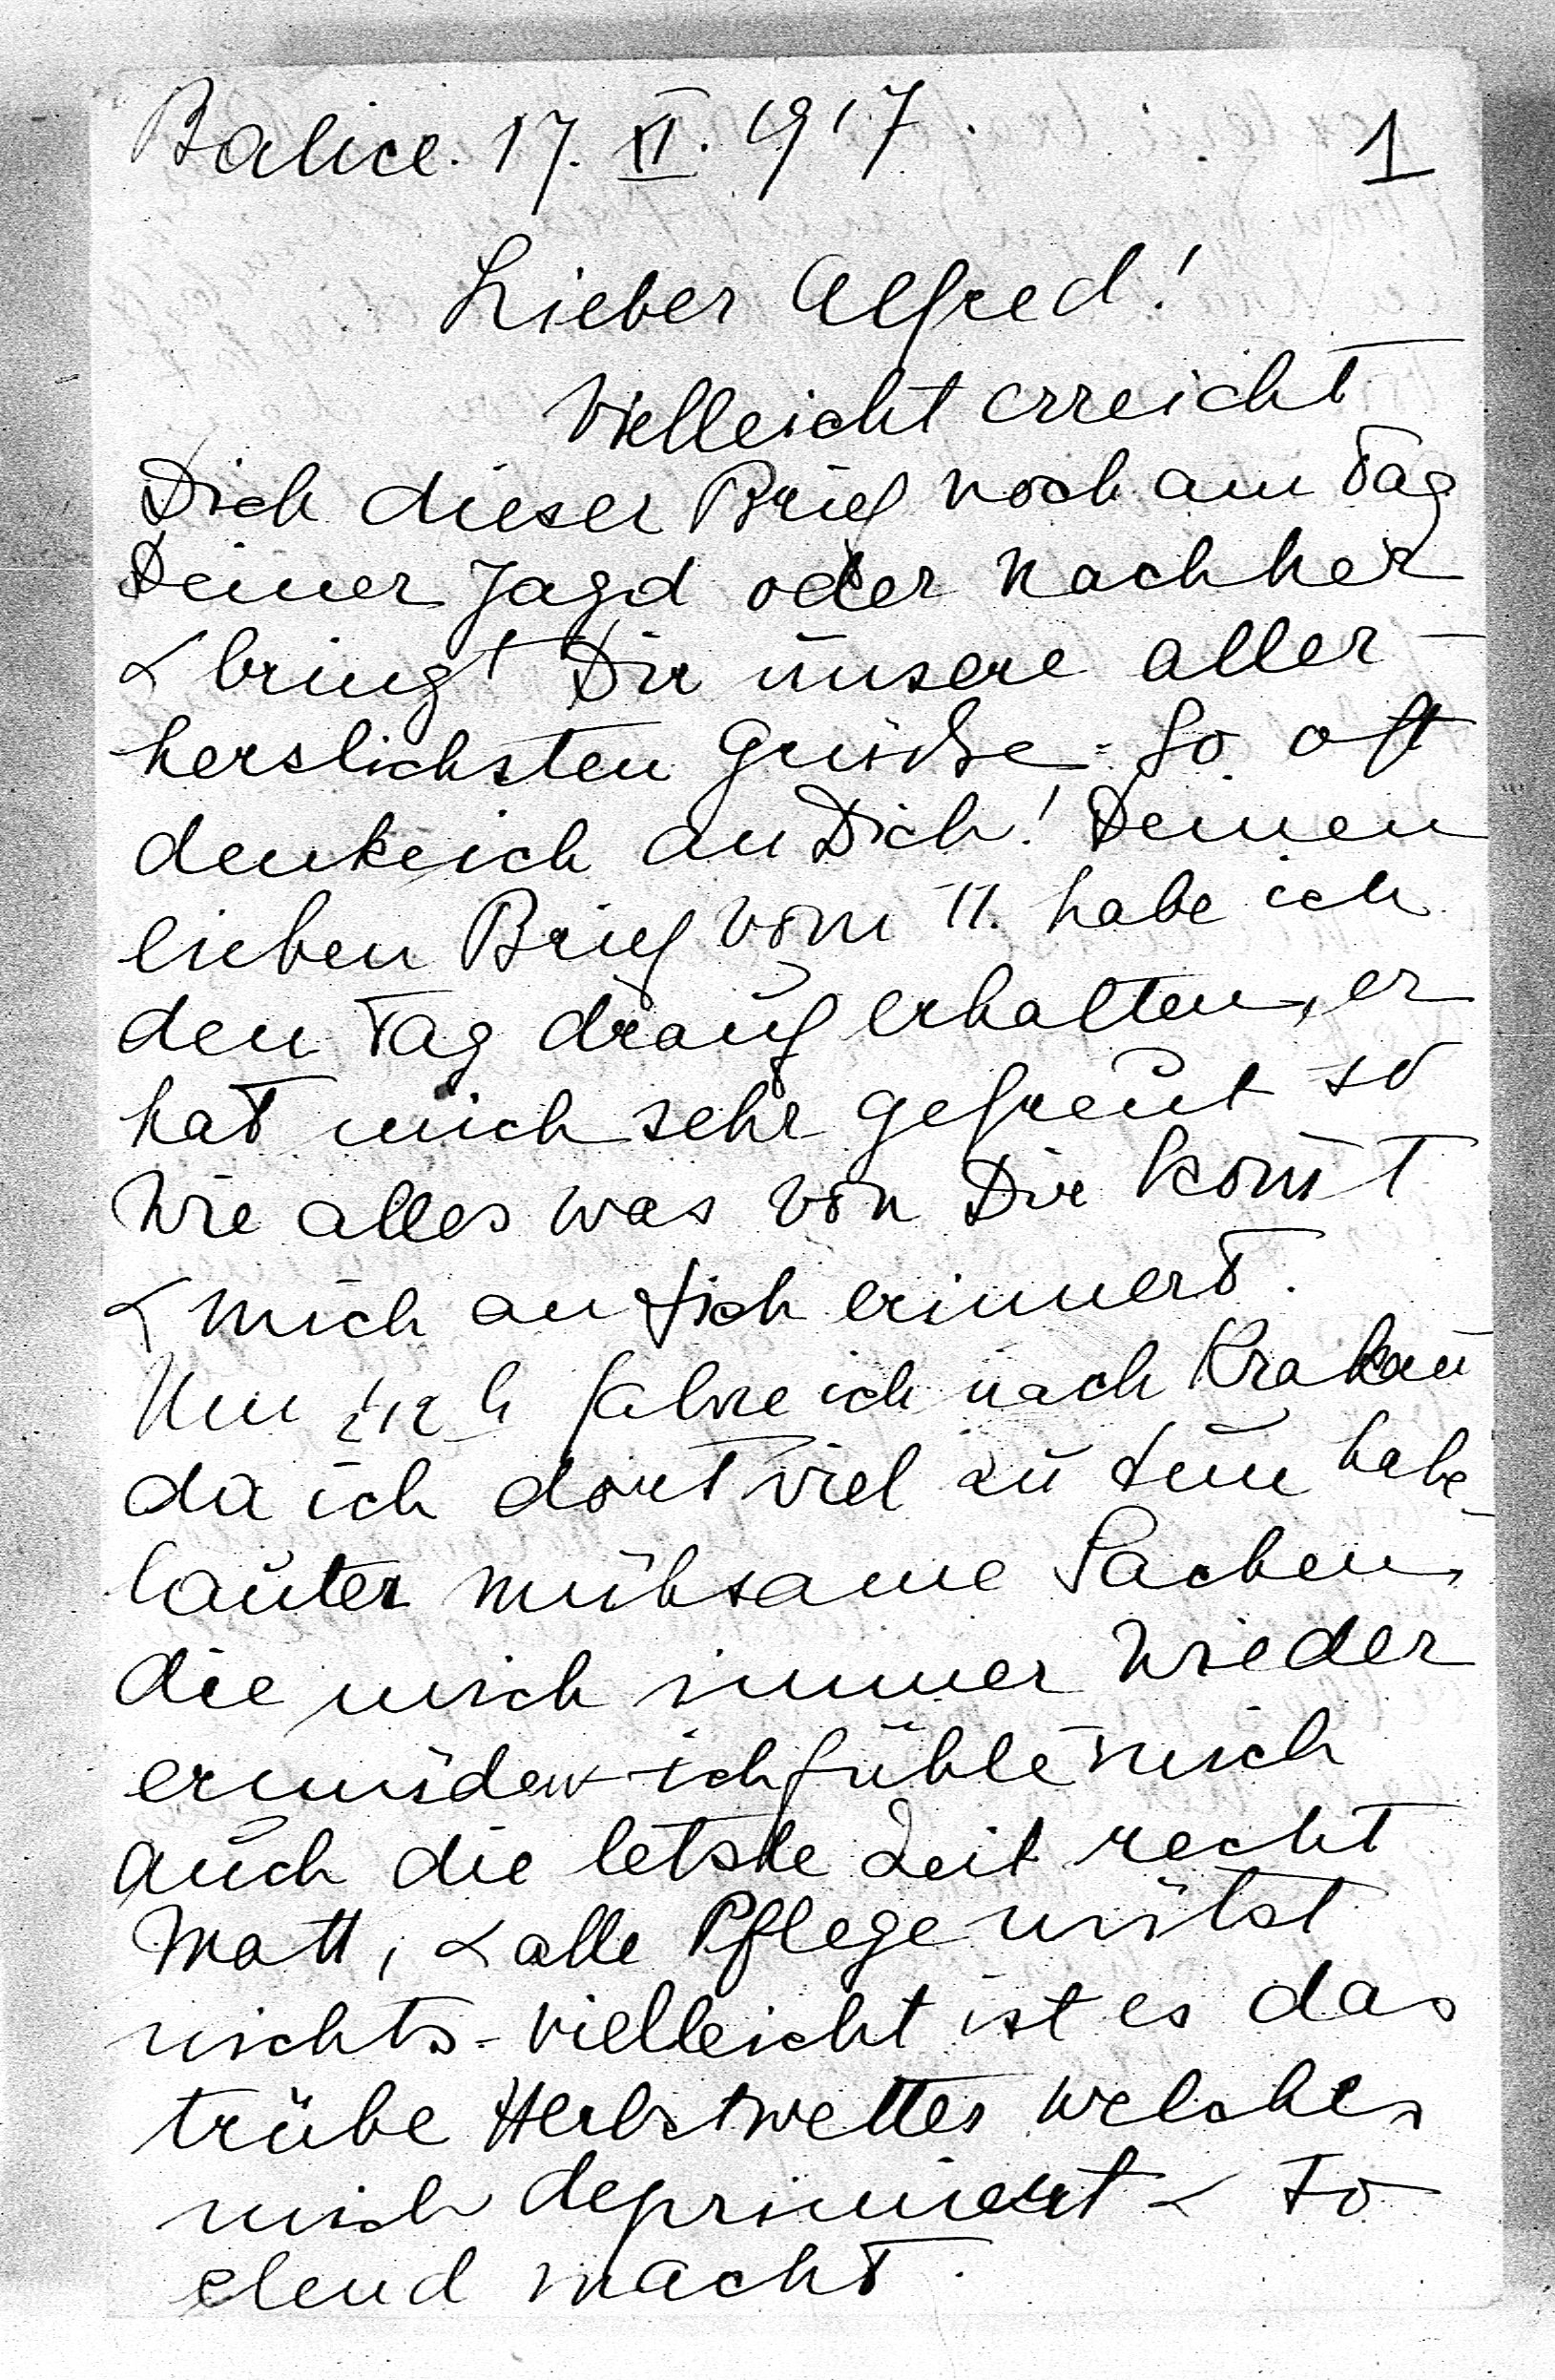 Balice. 17. XI. 1917. 1
Lieber Alfred!
Vielleicht erreicht
Dich dieser Brief noch am Tag
Deiner Jagd oder nachher
& bringt Dir unsere aller-
herslichsten Grüsse - So oft
denke ich an Dich! Deinen
lieben Brief vom 11. habe ich
den Tag drauf erhalten, er
hat mich sehr gefreut so
wie alles was von Dir kom̄t
& mich an Dich erinnert.
Um h fahre ich nach Krakau
da ich dort viel zu tun habe
lauter mühsame Sachen,
die mich immer wieder
ermüden - ich fühle mich
auch die letste Zeit recht
matt, & alle Pflege nütst
nichts - vielleicht ist es das
trübe Herbstwetter welches
mich deprimiert & so
elend macht.